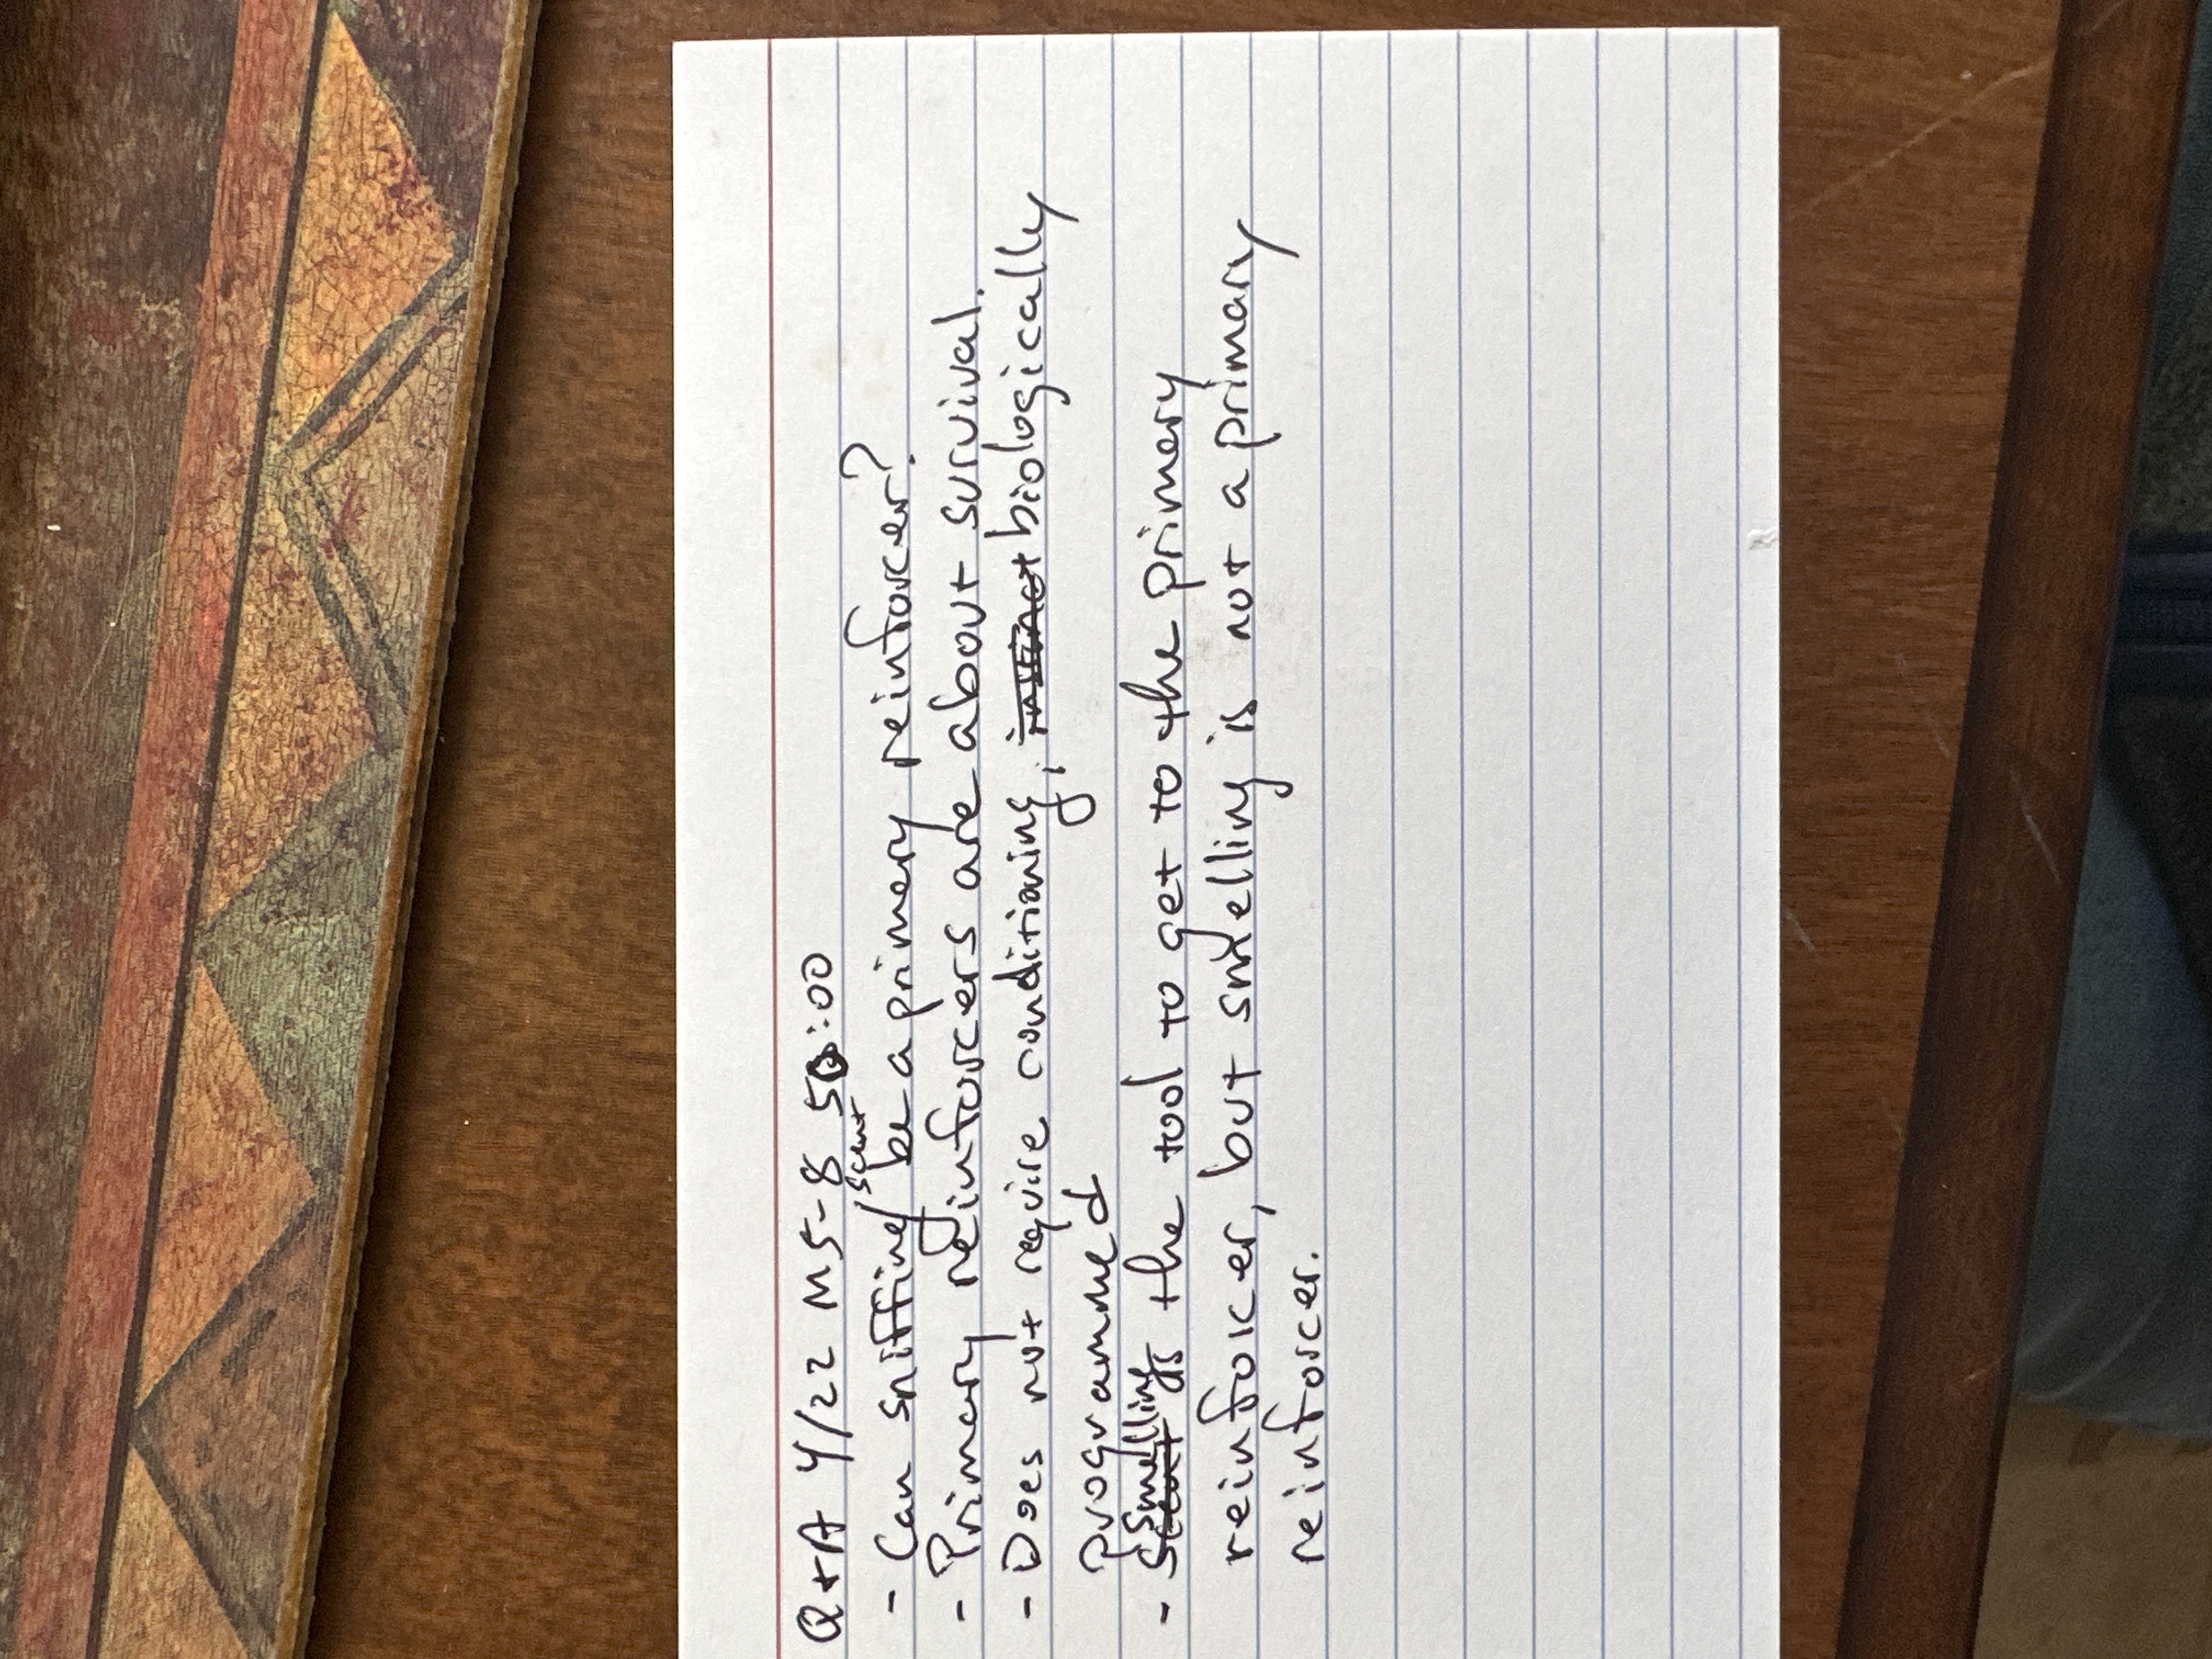 Q+A 4/22 M5-8 50:00
- Can sniffing/scent be a primary reinforcer?
- Primary reinforcers are about survival.
- Does not require conditioning, instinct biologically
programmed
- Scent Smelling is the tool to get to the primary
reinforcer, but smelling is not a primary
reinforcer.